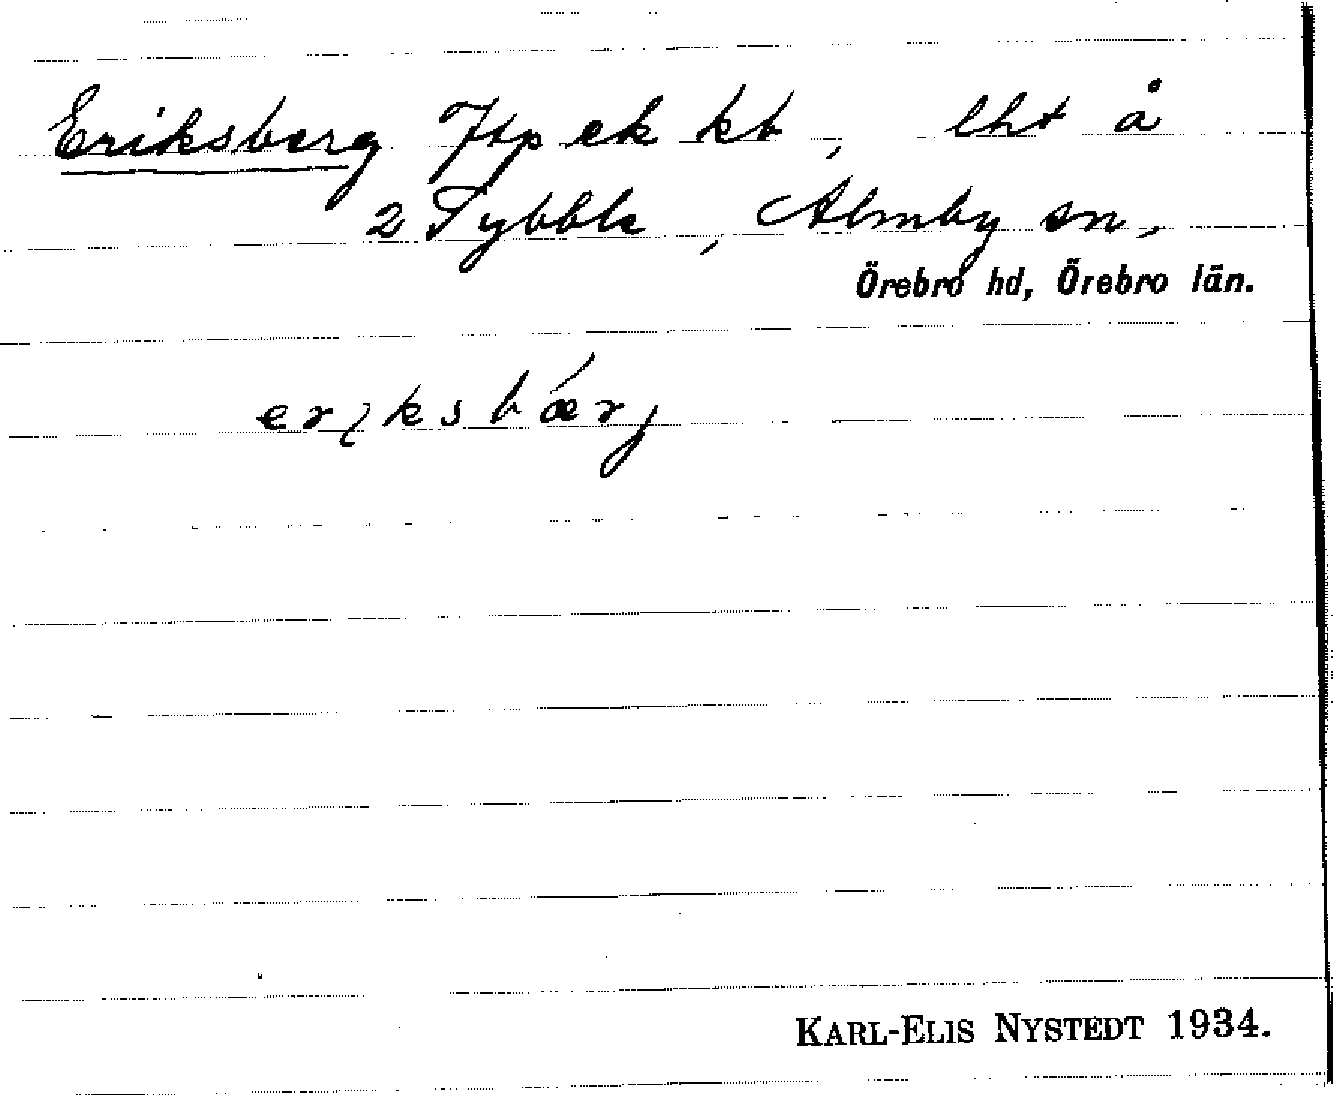 Eriksberg Jtp ek kb, lht å
2 Tybble, Almby sn,
Örebro hd, Örebro län.
eriksbærj
KARL-ELIS NYSTEDT 1934.